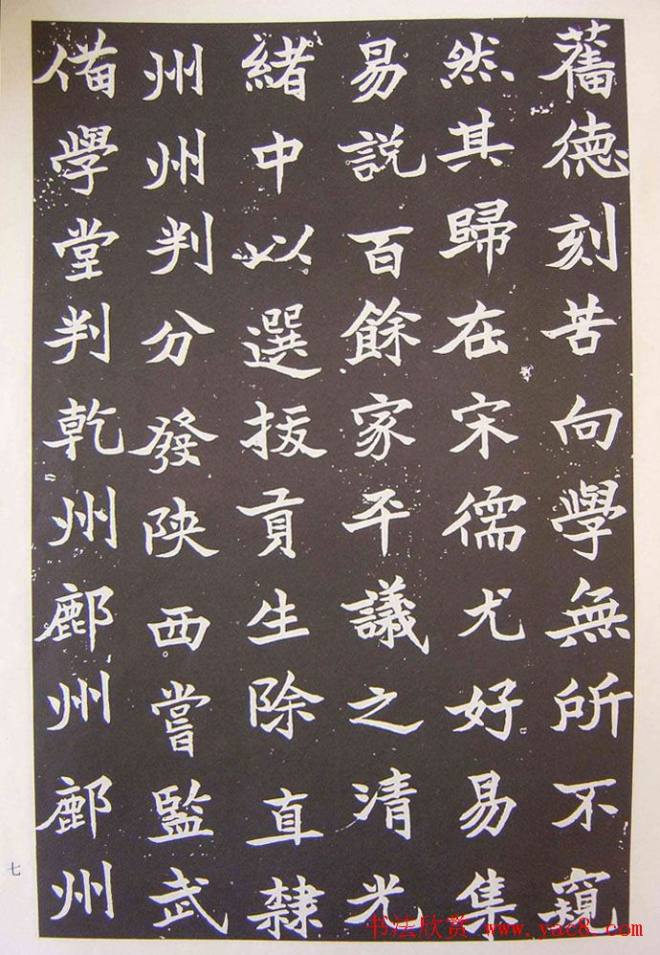 舊德刻苦向學無所不窺
然其歸在宋儒尤好易集
易說百餘家平議之清光
緒中以選拔貢生除直隸
州州判分發陝西嘗監武
備學堂判乾州鄜州鄜州
七
书法欣赏 www.yac8.com